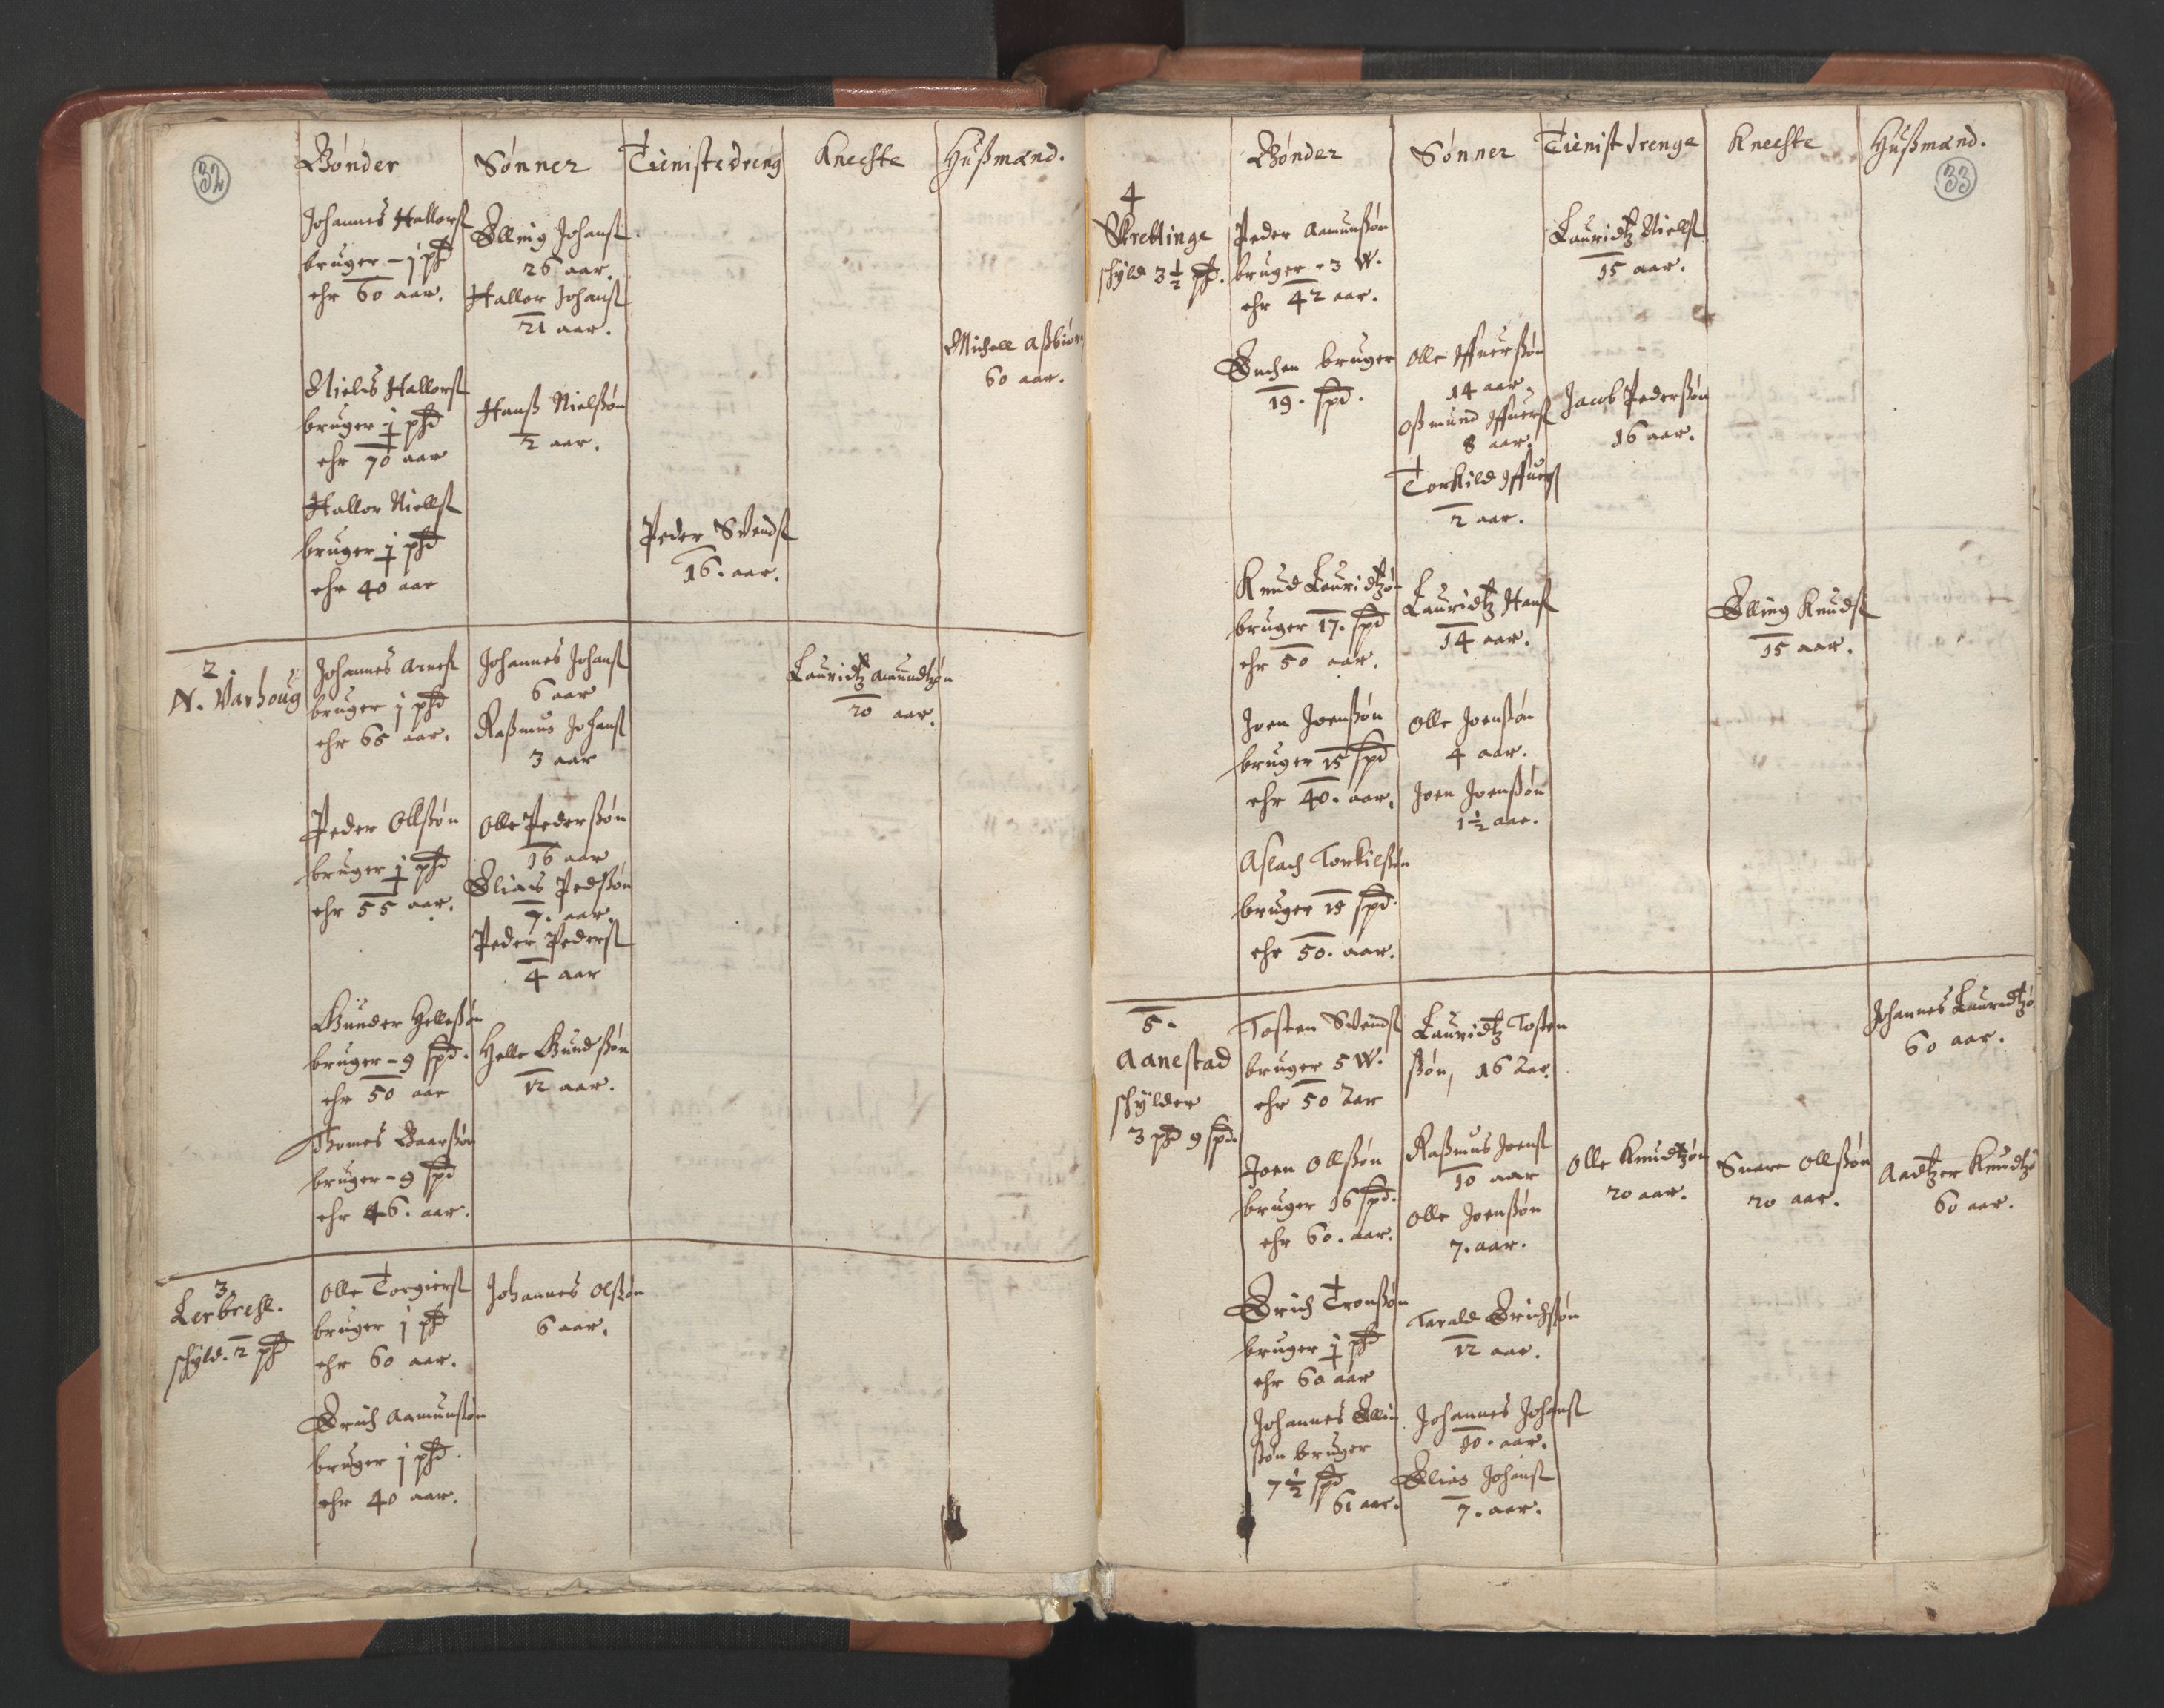 32
Bønder Sønner Tienistedreng Knechte Hußmænd.
Johannes Hallorß
bruger - j phd
ehr 60 aar.
Elling Johanß
26 aar.
Hallor Johanß
21 aar.
Michell Aßbiørn
60 aar.
Niels Hallorß
bruger j phd
ehr 70 aar
Hanß Nielßøn
2 aar.
Hallor Nielß
bruger j phd
ehr 40 aar
Peder Svendß
16. aar.
2.
N. Varhoug
Johannes Arneß
bruger j phd
ehr 65 aar.
Johannes Johanß
6 aar
Raßmus Johanß
3 aar
Lauridtz Amundtzøn
20 aar.
Peder Ollßøn
bruger j phd
ehr 55 aar.
Olle Pederßøn
16 aar
Elias Pedßøn
7. aar.
Peder Pederß
4 aar
Gunder Helleßøn
bruger - 9 spd.
ehr 50 aar
Helle Gundßøn
12 aar.
Thomes Baarßøn
bruger - 9 spd
ehr 46. aar.
3.
Lerbrech.
schyld. 2 phd
Olle Torgierß
bruger j phd
ehr 60 aar.
Johannes Olßøn
6 aar.
Erich Aamunßøn
bruger j phd.
ehr 40 aar.
33
Bønder Sønner Tienist drenge Knechte Hußmænd.
4
Skretlinge
schyld 3½ phd.
Peder Aamunßøn
bruger - 3 W.
ehr 42 aar.
Lauridtz Nielß
15 aar.
Enchen bruger
19. spd.
Olle Iffuerßøn
14 aar.
Oßmund Iffuerß
8 aar.
Torkild Iffuerß
2 aar.
Jacob Pederßøn
16 aar.
Knud Lauridtzøn
bruger 17. spd
ehr 50 aar.
Lauridtz Hanß
14 aar.
Elling Knudß
15 aar.
Joen Joenßøn
bruger 15 spd
ehr 40. aar.
Olle Joenßøn
4 aar.
Joen Joenßøn
1½ aar.
Aslach Torkilßøn
bruger 15 spd.
ehr 50. aar.
5.
Aanestad
schylder
3 phd 9 spd.
Tosten Svendß
bruger 5 W.
ehr 50 Aar
Lauridtz Tosten
ßøn, 16 Aar.
Johannes Lauridtzø
60 aar.
Joen Ollßøn
bruger 16 spd.
ehr 60. aar.
Raßmus Joenß
10 aar
Olle Joenßøn
7. aar.
Olle Knudtzøn
20 aar.
Snare Ollßøn
20 aar.
Aadtzer Knudtzø
60 aar.
Erich Tronßøn
bruger j phd
ehr 60 aar
Tarald Erichßøn
12 aar.
Johannes Ellin
ßøn bruger
7½ spd
61 aar.
Johannes Johanß
10. aar.
Elias Johanß
7. aar.